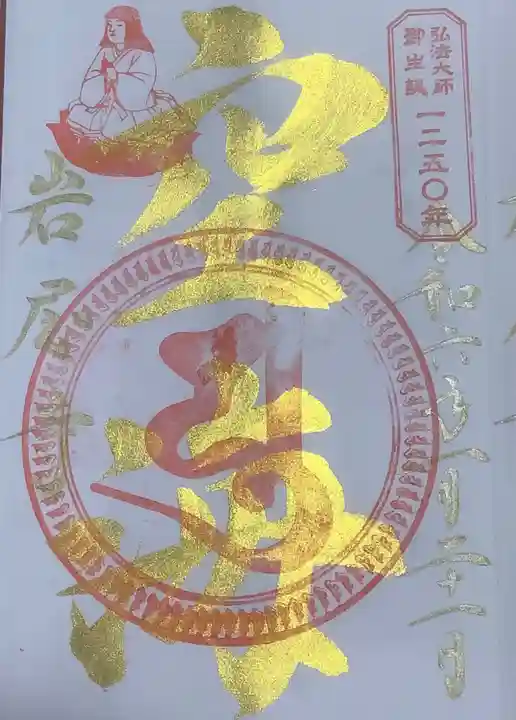 弘法大師
御生誕
一二五〇年
令和六年一月二十一日
空海
岩屋寺